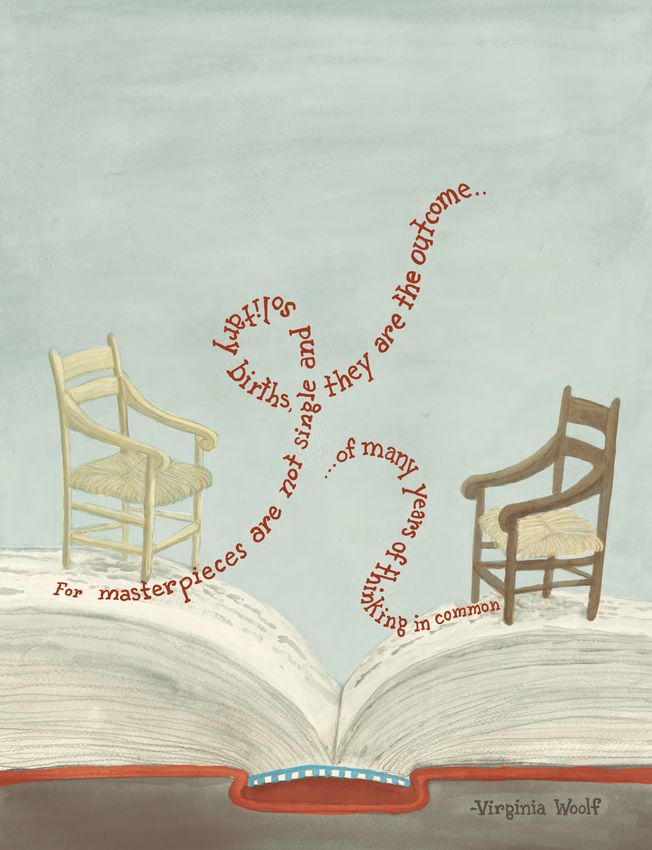 For masterpieces are not single and solitary births, they are the outcome..
...of many years of thinking in common
-Virginia Woolf